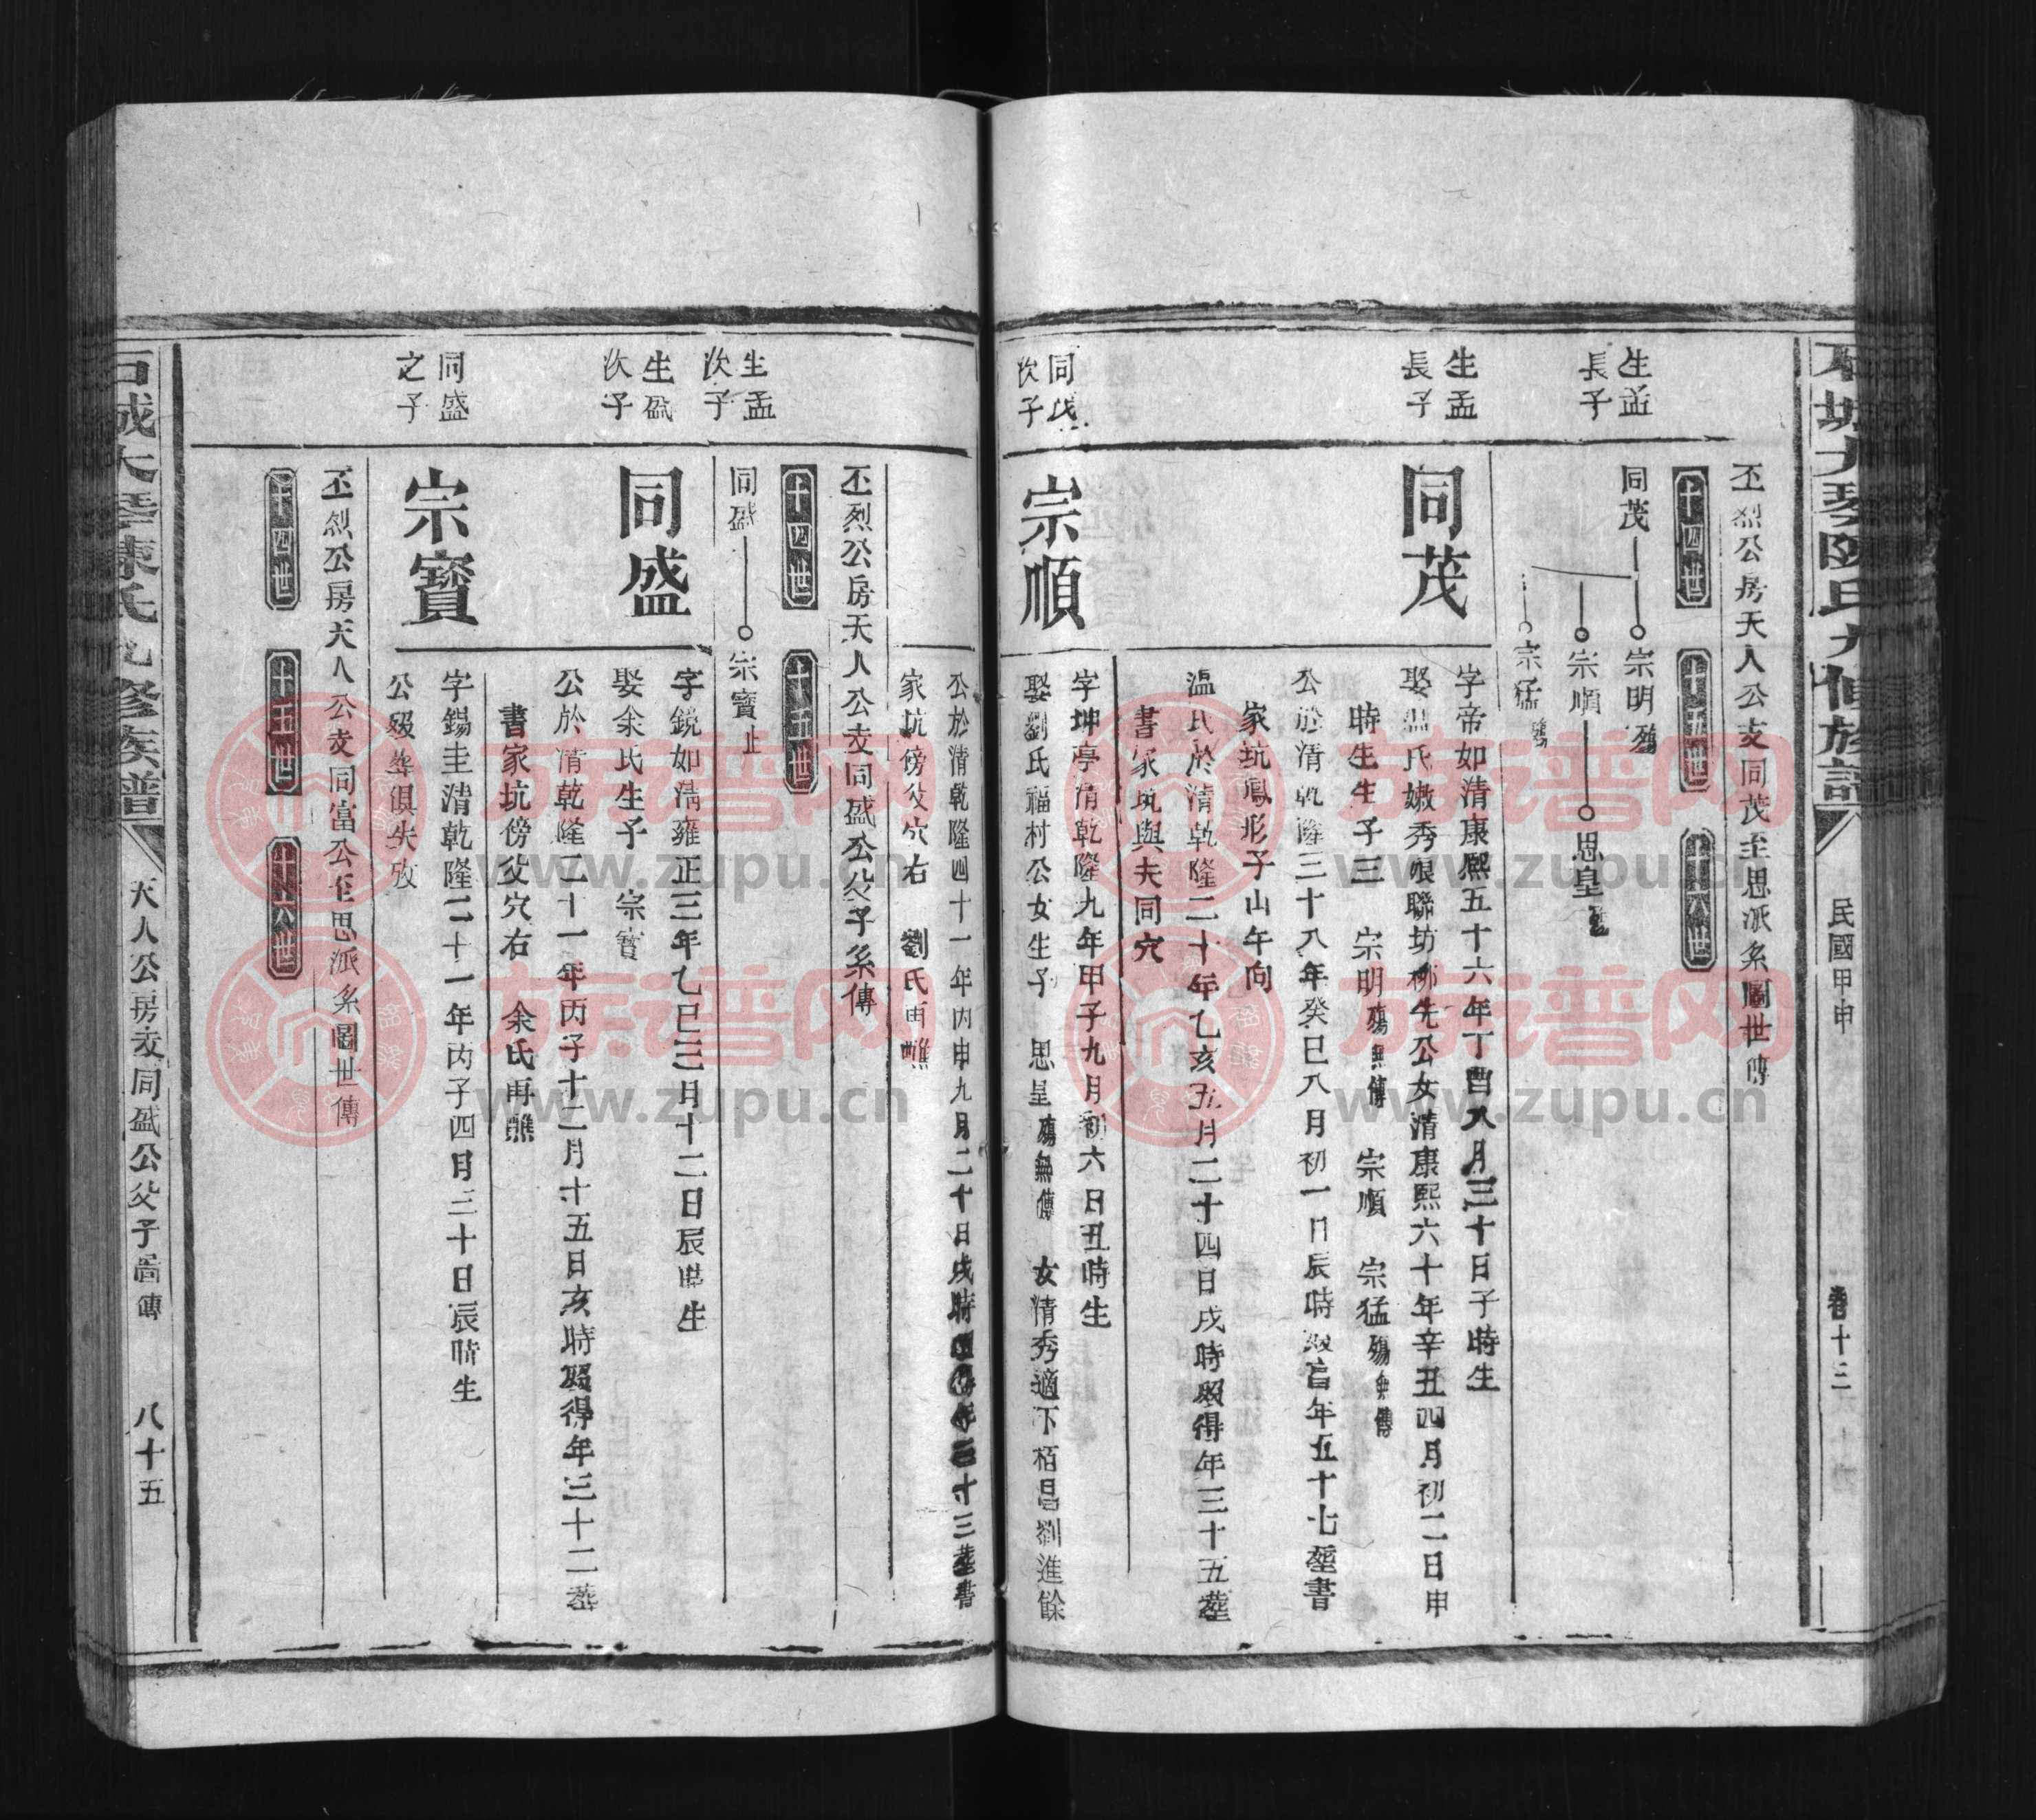 石城大琴陳氏九修族譜
民國甲申
卷十三
丕烈公房天人公支同茂至思派系圖世傳
十四世
十五世
十六世
生孟
長子
同茂
宗明殤
宗順
思皇
宗猛殤
生孟
長子
同茂
字帝如清康熙五十六年丁酉八月三十日子時生
娶溫氏嫩秀娘聯坊柳先公女清康熙六十年辛丑四月初二日申
時生生子三 宗明殤無傳 宗順 宗猛殤無傳
公於清乾隆三十八年癸巳八月初一日辰時歿享年五十七塟書
家坑鳳形子山午向
溫氏於清乾隆二十年乙亥五月二十四日戌時歿得年三十五塟
書家坑與夫同穴
同茂
次子
宗順
字坤亭清乾隆九年甲子九月初六日丑時生
娶劉氏福村公女生子 思呈殤無傳 女清秀適下栢昌劉進餘
公於清乾隆四十一年丙申九月二十日戌時歿得年三十三塟書
家坑傍父穴右 劉氏再醮
丕烈公房天人公支同盛公父子系傳
十四世
十五世
生孟
次子
同盛
宗寶止
生孟
次子
同盛
字鏡如清雍正三年乙巳三月十二日辰時生
娶余氏生子 宗寶
公於清乾隆二十一年丙子十二月十五日亥時歿得年三十二塟
書家坑傍父穴右 余氏再醮
同盛
之子
宗寶
字錫圭清乾隆二十一年丙子四月三十日辰時生
公歿葬俱失攷
丕烈公房天人公支同富公至思派系圖世傳
十四世
十五世
十六世
石城大琴陳氏九修族譜
天人公房支同盛公父子圖傳
八十五
族谱网
www.zupu.cn
族谱网
www.zupu.cn
族谱网
www.zupu.cn
族谱网
www.zupu.cn